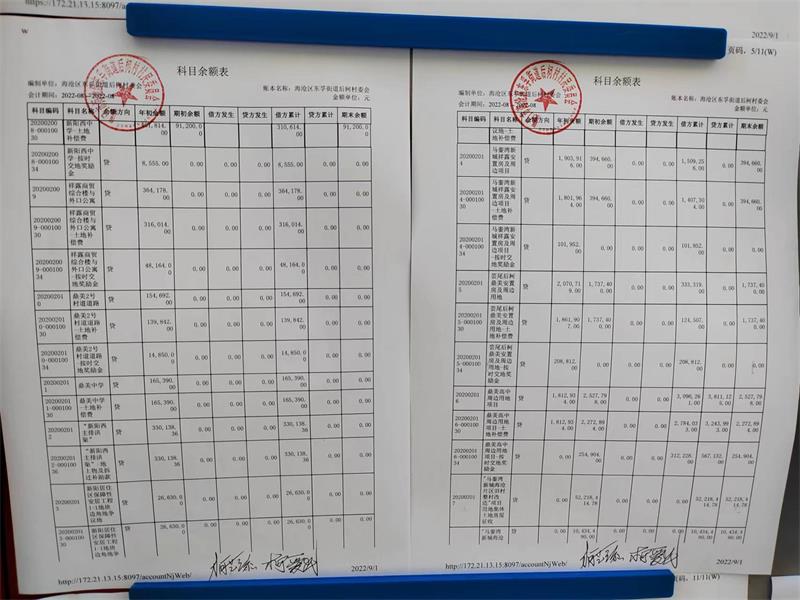 https://172.21.13.15:8097/a
2022/9/1
W
页码，5/11(W)
科目余额表
账本名称：海沧区东孚街道后柯村委会
会计期间：2022-08--2022-08
金额单位：元
科目编码 科目名称 余额方向 年初余额 期初余额 借方发生 贷方发生 借方累计 贷方累计 期末余额
20200208-00010030 新阳西中学-土地补偿费 91,200.00 0.00 0.00 310,614.00 0.00 91,200.00
20200208-00010034 新阳西中学-按时交地奖励金 贷 8,555.00 0.00 0.00 0.00 8,555.00 0.00 0.00
20200209 祥露商贸综合楼与外口公寓 贷 364,178.00 0.00 0.00 0.00 364,178.00 0.00 0.00
20200209-00010030 祥露商贸综合楼与外口公寓-土地补偿费 贷 316,014.00 0.00 0.00 0.00 316,014.00 0.00 0.00
20200209-00010034 祥露商贸综合楼与外口公寓-按时交地奖励金 贷 48,164.00 0.00 0.00 0.00 48,164.00 0.00 0.00
20200210 鼎美2号村道道路 贷 154,692.00 0.00 0.00 0.00 154,692.00 0.00 0.00
20200210-00010030 鼎美2号村道道路-土地补偿费 贷 139,842.00 0.00 0.00 0.00 139,842.00 0.00 0.00
20200210-00010034 鼎美2号村道道路-按时交地奖励金 贷 14,850.00 0.00 0.00 0.00 14,850.00 0.00 0.00
20200211 鼎美中学 贷 165,390.00 0.00 0.00 0.00 165,390.00 0.00 0.00
20200211-00010030 鼎美中学-土地补偿费 贷 165,390.00 0.00 0.00 0.00 165,390.00 0.00 0.00
20200212 “新阳西主排洪渠” 贷 330,138.36 0.00 0.00 0.00 330,138.36 0.00 0.00
20200212-00010036 “新阳西主排洪渠”-地上物及拆迁补助款 贷 330,138.36 0.00 0.00 0.00 330,138.36 0.00 0.00
20200213 新阳居住区保障性安居工程1-1地块边角地争议地 贷 26,630.00 0.00 0.00 0.00 26,630.00 0.00 0.00
新阳居住区保障性安居工程1-1地块边角地争 贷 26,630.00 0.00 0.00 0.00 26,630.00 0.00 0.00
http://172.21.13.15:8097/accountNjWeb/
2022/9/1
科目余额表
账本名称：海沧区东孚街道后柯村委会
会计期间：2022-08--2022-08
金额单位：元
科目编码 科目名称 余额方向 年初余额 期初余额 借方发生 贷方发生 借方累计 贷方累计 期末余额
议地-土地补偿费
20200214 马銮湾新城祥露安置房及周边项目 贷 1,903,916.00 394,660.00 0.00 0.00 1,509,256.00 0.00 394,660.00
20200214-00010030 马銮湾新城祥露安置房及周边项目-土地补偿费 贷 1,801,964.00 394,660.00 0.00 0.00 1,407,304.00 0.00 394,660.00
20200214-00010034 马銮湾新城祥露安置房及周边项目-按时交地奖励金 贷 101,952.00 0.00 0.00 0.00 101,952.00 0.00 0.00
20200215 芸尾后柯鼎美安置房及周边用地 贷 2,070,719.00 1,737,400.00 0.00 0.00 333,319.00 0.00 1,737,400.00
20200215-00010030 芸尾后柯鼎美安置房及周边用地-土地补偿费 贷 1,861,907.00 1,737,400.00 0.00 0.00 124,507.00 0.00 1,737,400.00
20200215-00010034 芸尾后柯鼎美安置房及周边用地-按时交地奖励金 贷 208,812.00 0.00 0.00 0.00 208,812.00 0.00 0.00
20200216 鼎美高中周边用地项目 贷 1,812,934.00 2,527,798.00 0.00 0.00 3,096,261.00 3,811,125.00 2,527,798.00
20200216-00010030 鼎美高中周边用地项目-土地补偿费 贷 1,812,934.00 2,272,894.00 0.00 0.00 2,784,033.00 3,243,993.00 2,272,894.00
20200216-00010034 鼎美高中周边用地项目-按时交地奖励金 贷 0.00 254,904.00 0.00 0.00 312,228.00 567,132.00 254,904.00
20200217 “马銮湾新城海沧片区旧村整村改造”项目用地集体土地房屋征收 贷 0.00 52,218,414.78 0.00 0.00 0.00 52,218,414.78 52,218,414.78
“马銮湾新城海沧 贷 0.00
http://172.21.13.15:8097/accountNjWeb/
2022/9/1
页码，11/11(W)